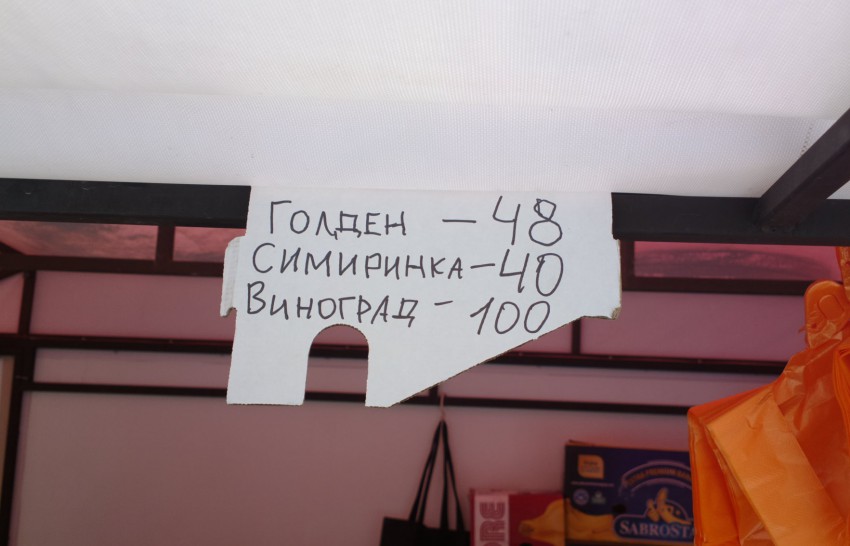 ГОЛДЕН - 48
СИМИРИНКА - 40
ВИНОГРАД - 100
SABROSTA